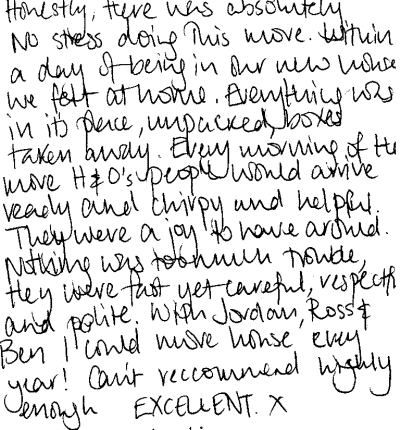 Honestly, there was absolutely
No stress doing this move. Within
a day of being in our new house
we felt at home. Everything was
in its place, unpacked, boxes
taken away. Every morning of the
move H&O's people would arrive
ready and chirpy and helpful.
They were a joy to have around.
Nothing was too much trouble,
they were fast yet careful, respectf
and polite. With Jordan, Ross &
Ben I could move house every
year! Can't reccommend highly
enough EXCELLENT. X